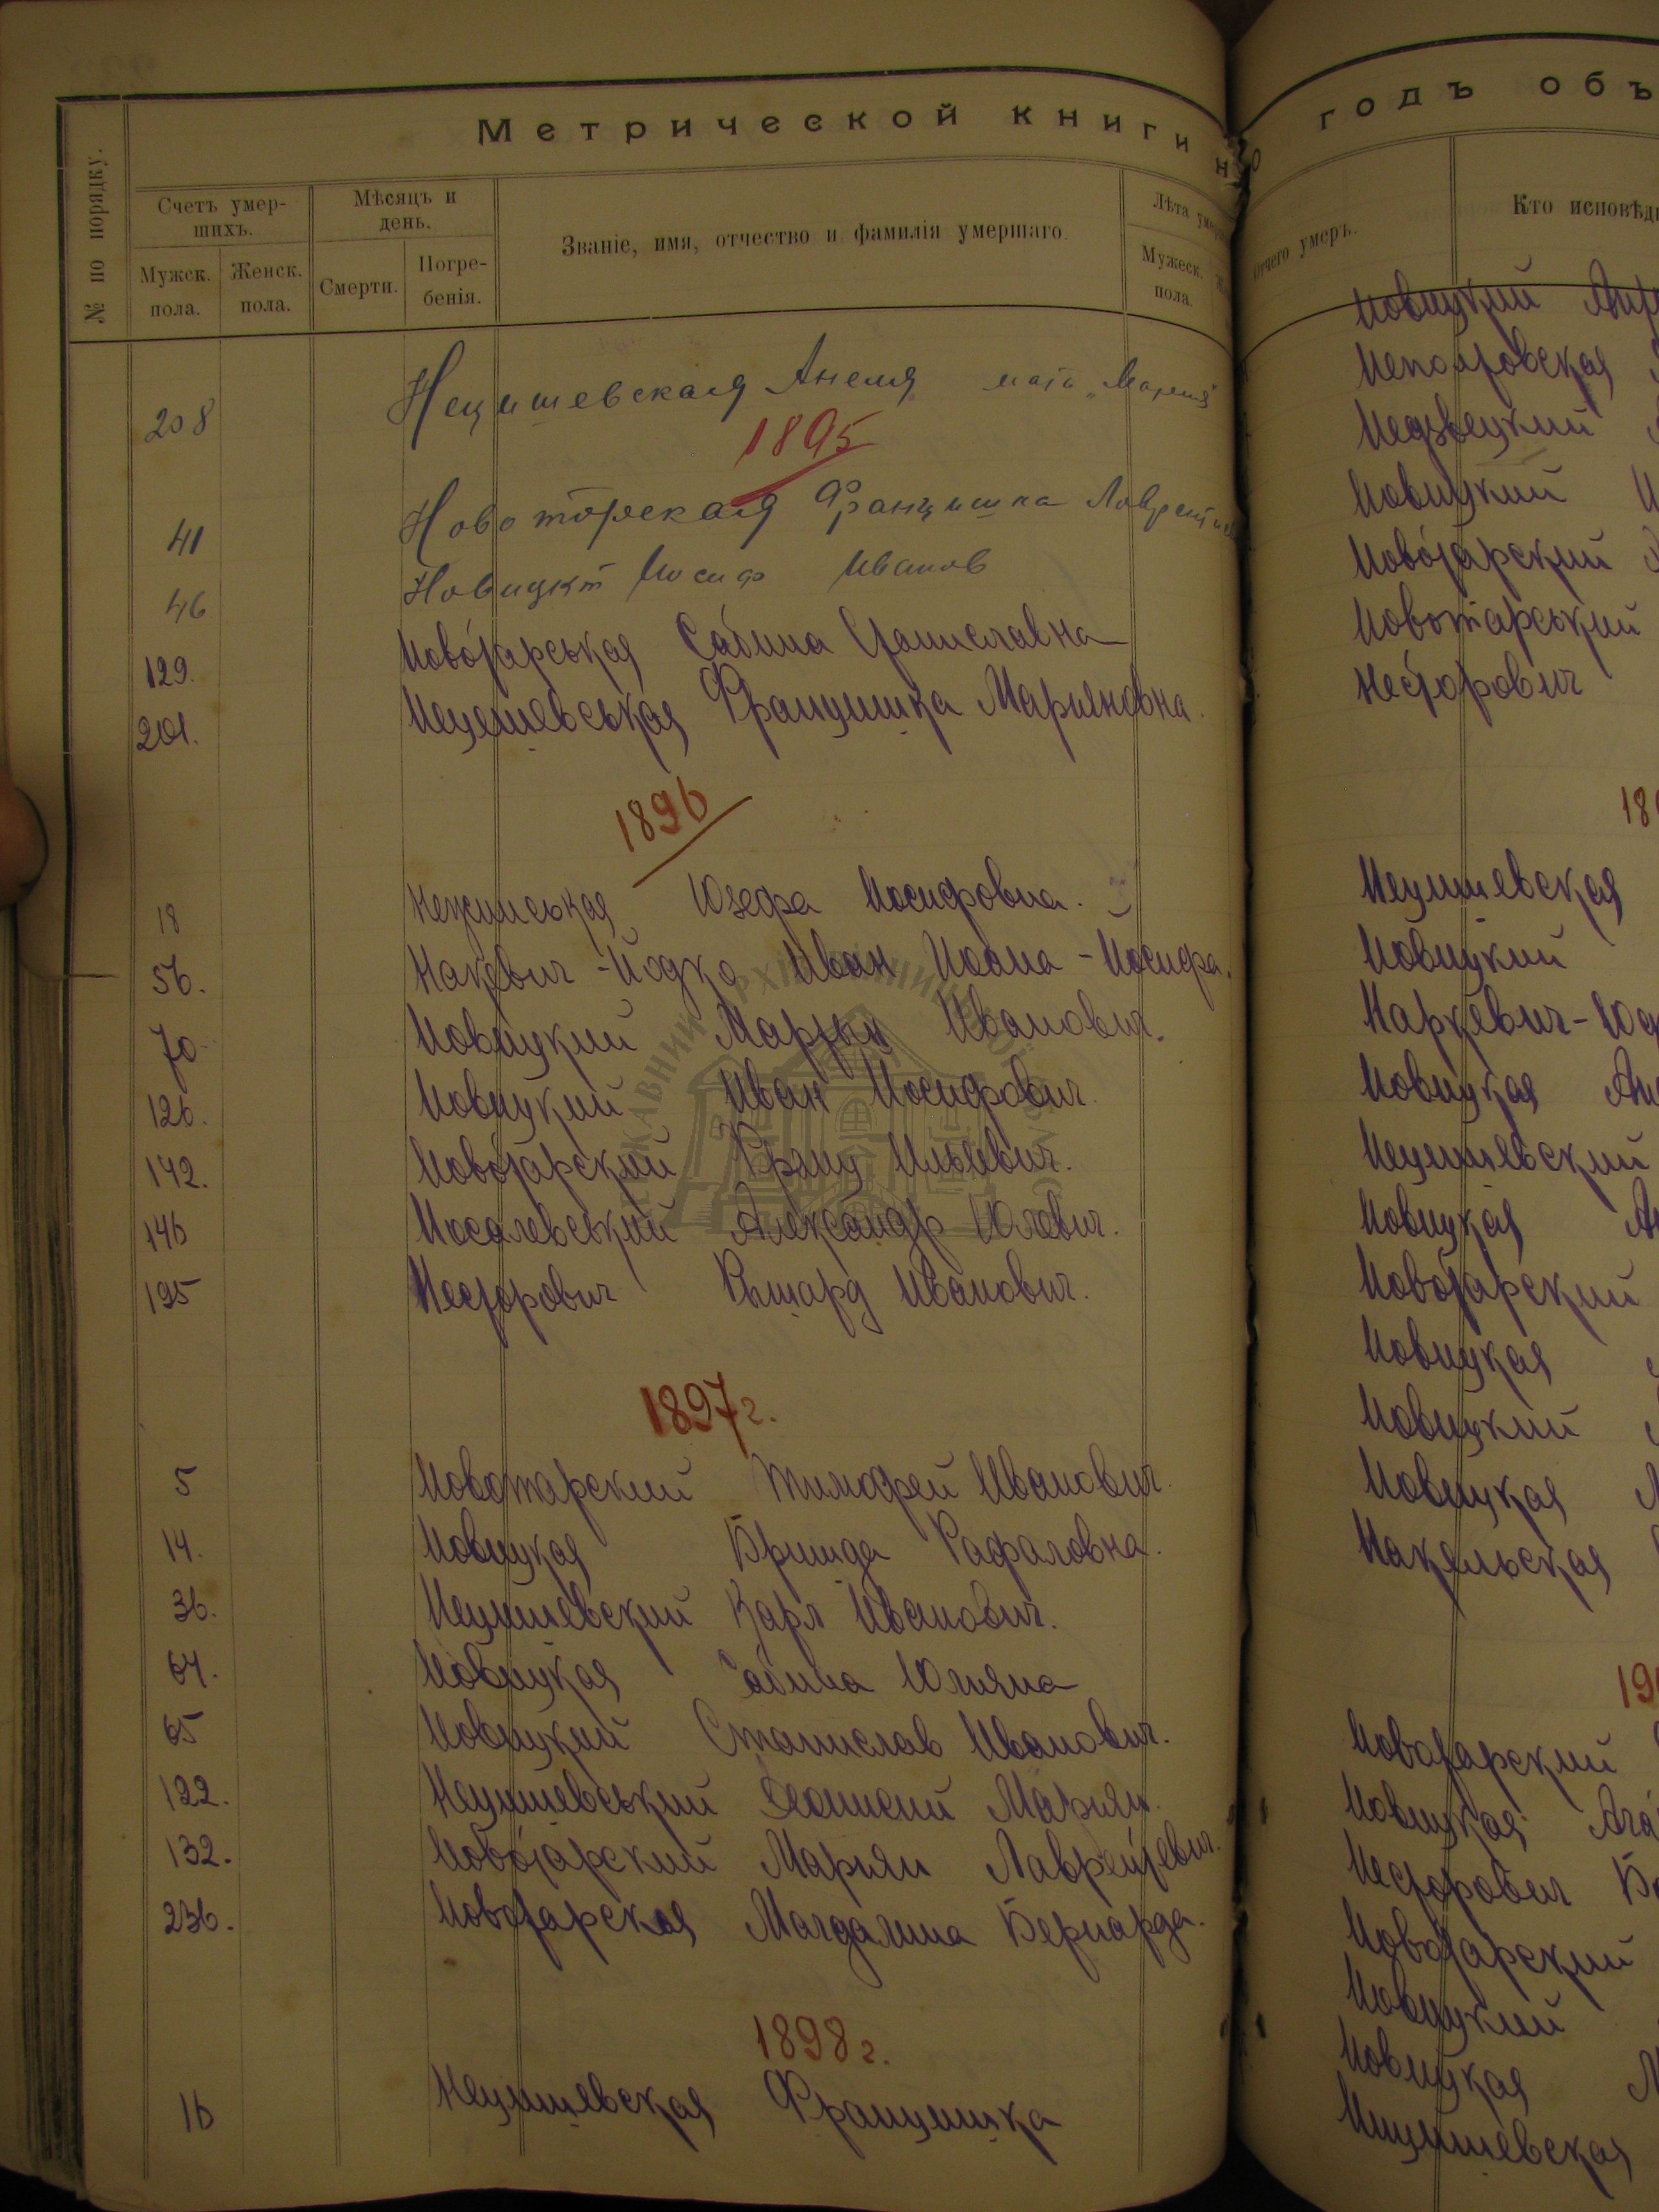 Метрической книги н
№ по порядку.
Счетъ умер-
шихъ.
Мужск.
пола.
Женск.
пола.
Мѣсяцъ и
день.
Смерти.
Погре-
бенія.
Званіе, имя, отчество и фамилія умершаго.
Лѣта
Мужеск.
пола.
208 Нецишевская Анеля мать „Мария"
1895
41 Новотарская Францишка
46 Новицкій Иосиф Иванов
129. Новотарськая Сабина Станиславна
201. Нецешевськая Францишка Марияновна.
1896
18 Юзефа Иосифовна.
56. Накевич-Йодко Иван Иоана-Иосифа.
70 Новицкий Марцин Иванович.
126. Новицкий Иван Иосифович.
142. Новотарский Франц Ильевич.
146 Носалевський Александр Юлевич.
195 Несторович Рышард Иванович.
1897 г.
5 Новотарский Тимофей Иванович.
14. Новицкая Бригида Рафаловна.
36. Нецишевский Карл Иванович.
64. Новицкая Сабина Юлияна
65 Новицкий Станислав Иванович.
122. Нецишевський Мариян.
132. Новотарский Мариян Лаврентьевич.
236. Новотарская Магдалина Бернарда.
1898 г.
16 Нецишевская Францишка
годъ объ
Отчего умеръ.
Кто исповѣды
Новицкий
Неполровская
Недзвецкий
Новицкий
Новотарский
Новотарський
Несторович
Нецишевская
Новицкий
Наркевич-Юд
Новицкая
Нецишевский
Новицкая
Новотарский
Новицкая
Новицкий
Новицкая
Накельская
Новотарский
Новицкая
Несторович
Новотарский
Новицкий
Новицкая
Нецишевская